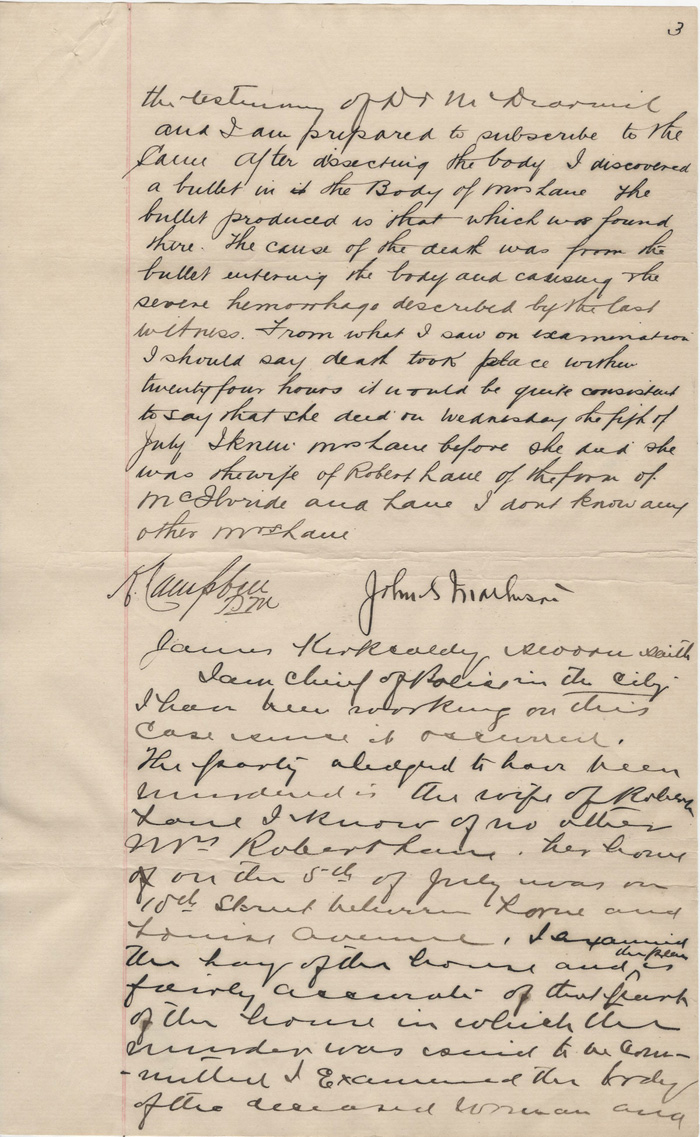 3
the testimony of Dr McDiarmid
and I am prepared to subscribe to the
Same After dissecting the body I discovered
a bullet in it the Body of Mrs Lane The
bullet produced is that which was found
there. The cause of the death was from the
bullet entering the body and causing the
severe hemorrhage described by the last
witness. From what I saw on examination
I should say death took place within
twenty four hours it would be quite consistent
to say that she died on Wednesday the fifth of
July I knew Mrs Lane before she died she
was the wife of Robert Lane of the form of
McIlvride and Lane I dont know any
other Mrs Lane
Campbell
PM
John S Matheson
James Kirkcaldy sworn saith
I am Chief of Police in the City
I have been working on this
Case since it occurred.
The party aledged to have been
murdered is the wife of Robert
Lane I know of no other
Mrs Robert Lane. her home
on the 5th of July was on
10th Street between Lorne and
Louise Avenue. I examined
the plan
the lay of the house and is
fairly accurate of that part
of the house in which the
murder was said to be Com-
-mitted I Examined the body
of the deceased woman and